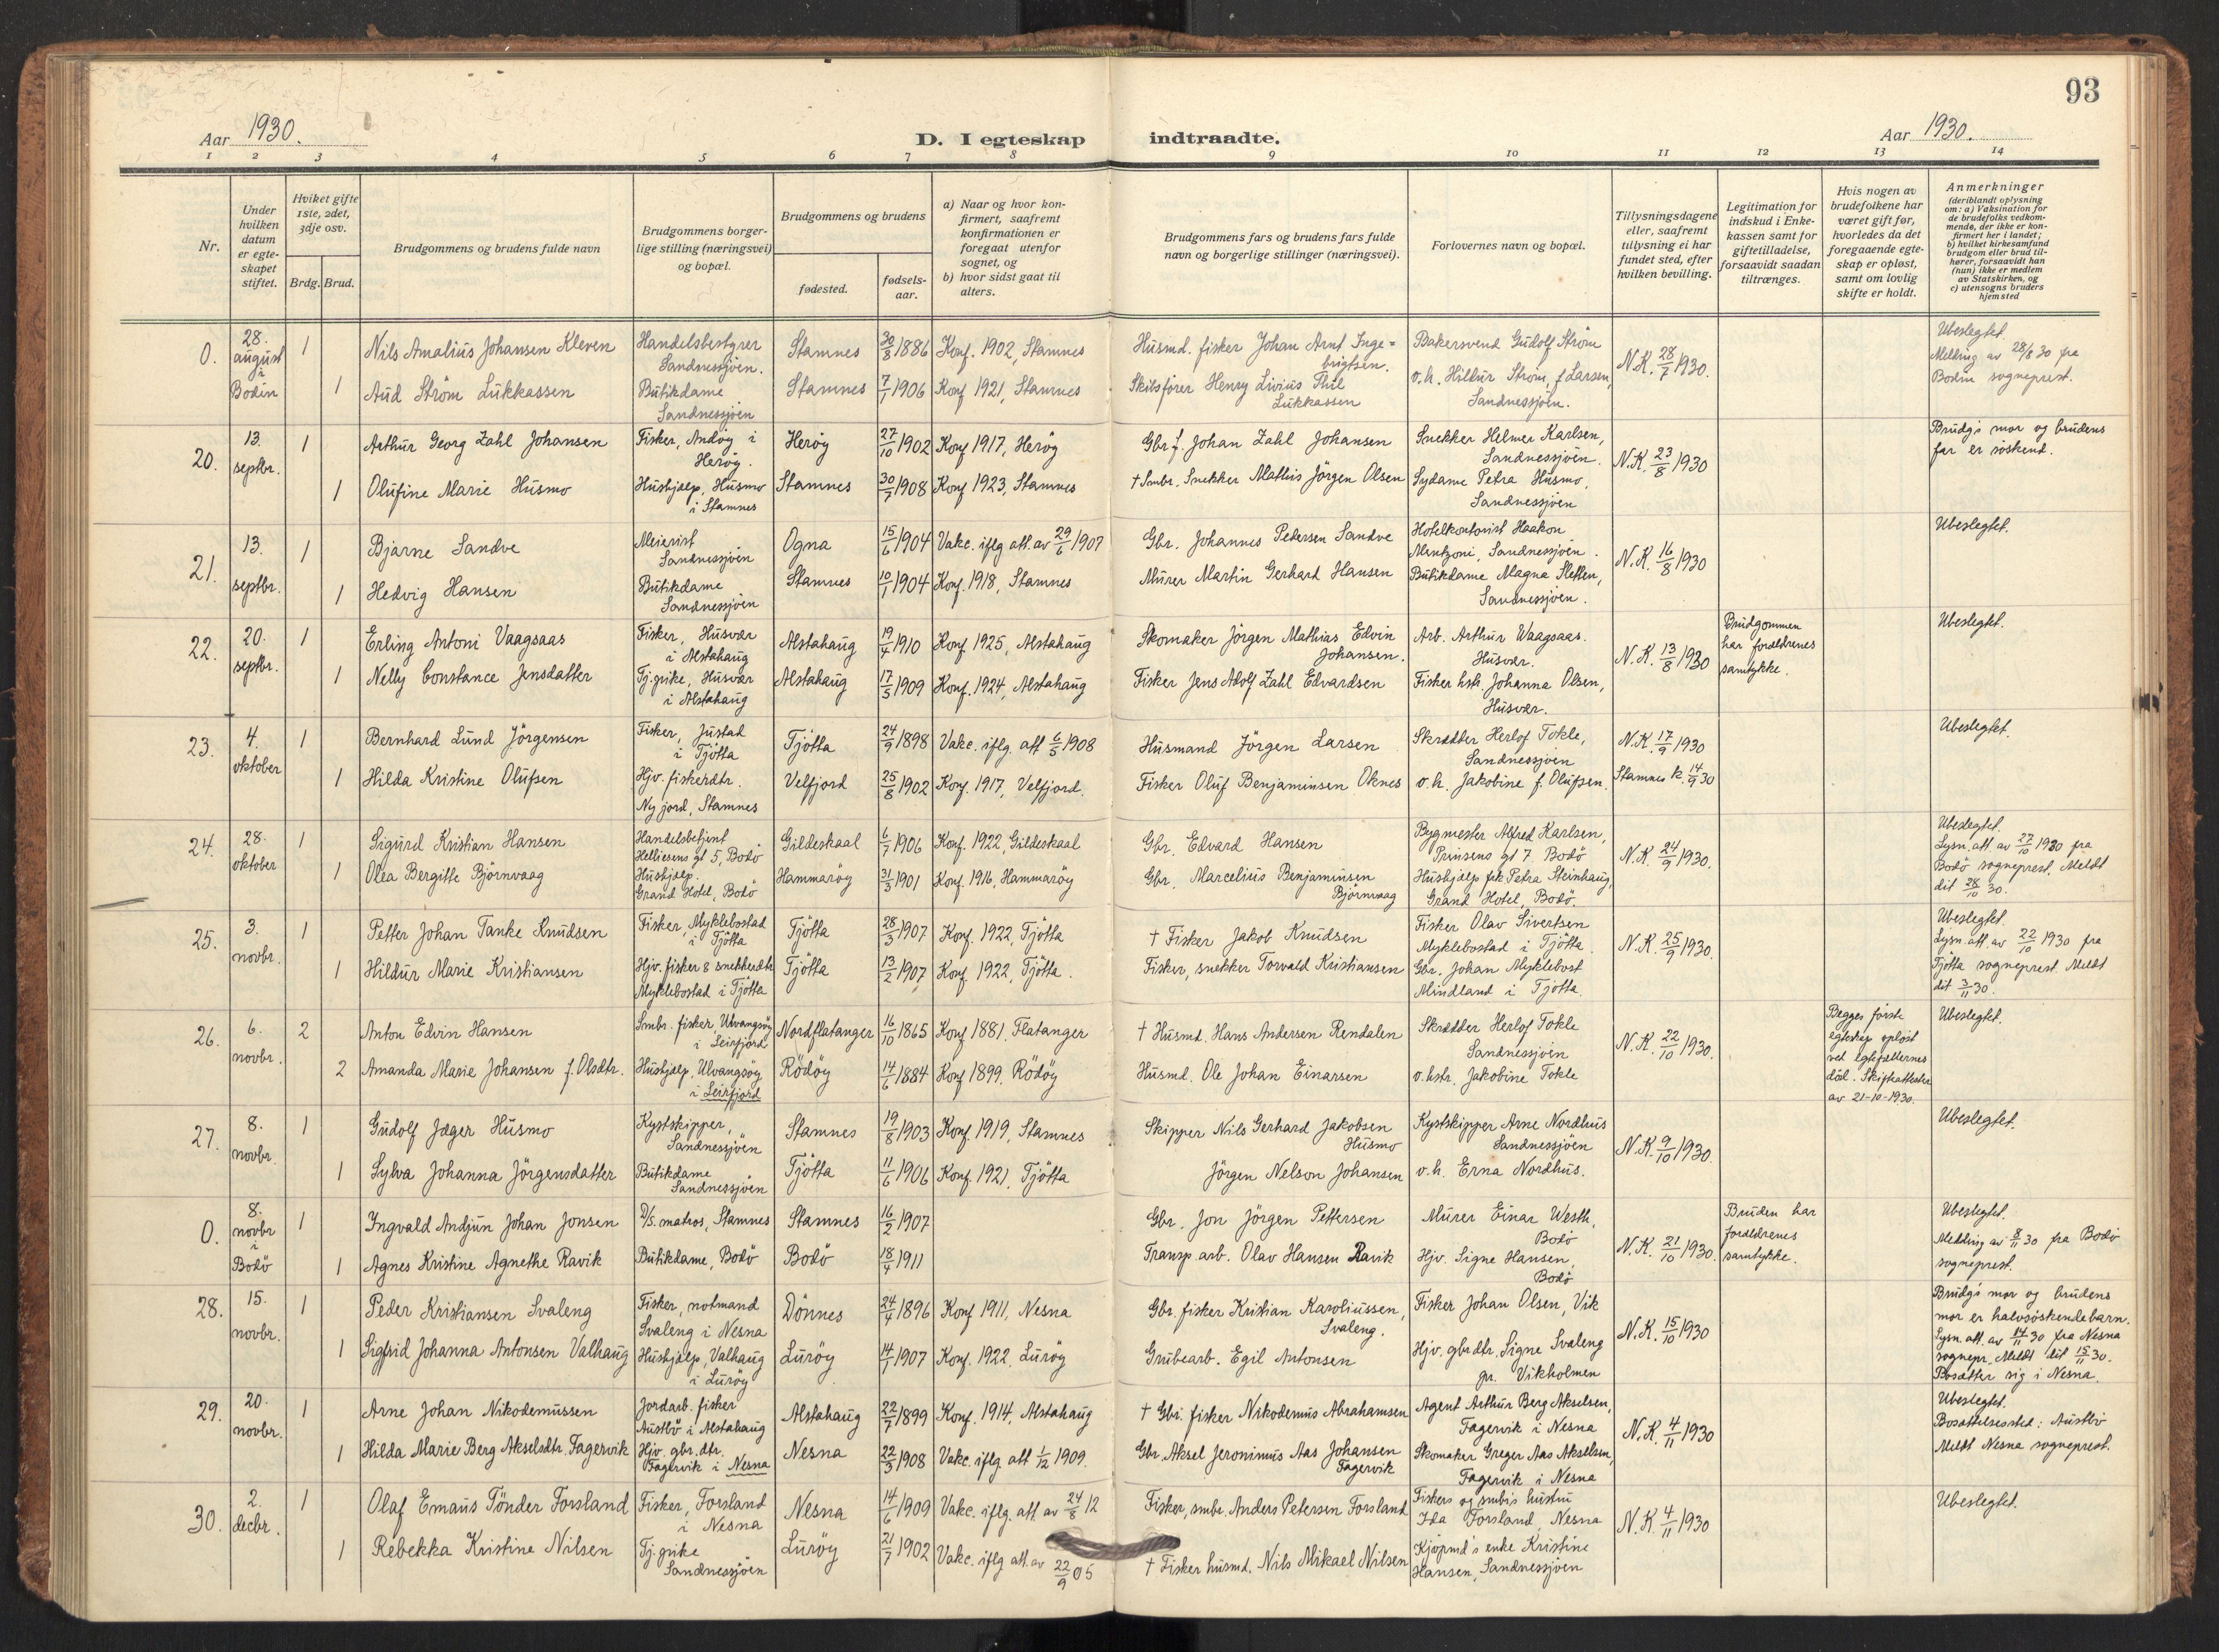 93
Aar 1930.
D. I egteskap indtraadte.
Aar 1930.
1 2 3 4 5 6 7 8 9 10 11 12 13 14
Nr.
Under hvilken datum er egte-skapet stiftet.
Hviket gifte 1ste, 2det, 3dje osv.
Brdg. Brud.
Brudgommens og brudens fulde navn
Brudgommens borger-
lige stilling (næringsvei)
og bopæl.
Brudgommens og brudens
fødested.
fødsels-
aar.
a) Naar og hvor kon-
firmert, saafremt
konfirmationen er
foregaat utenfor
sognet, og
b) hvor sidst gaat til
alters.
Brudgommens fars og brudens fars fulde
navn og borgerlige stillinger (næringsvei).
Forlovernes navn og bopæl.
Tillysningsdagene
eller, saafremt
tillysning ei har
fundet sted, efter
hvilken bevilling.
Legitimation for
indskud i Enke-
kassen samt for
giftetilladelse,
forsaavidt saadan
tiltrænges.
Hvis nogen av
brudefolkene har
været gift før,
hvorledes da det
foregaaende egte-
skap er opløst,
samt om lovlig
skifte er holdt.
Anmerkninger
(deriblandt oplysning
om: a) Vaksination for
de brudefolks vedkom-
mende, der ikke er kon-
firmert her i landet;
b) hvilket kirkesamfund
brudgom eller brud til-
hører, forsaavidt han
(hun) ikke er medlem
av Statskirken, og
c) utensogns bruders
hjemsted
0. 28. august i Bodin 1 Nils Amalius Johansen Kleven Handelsbestyrer Sandnessjöen. Stamnes 30/8 1886 Konf. 1902, Stamnes Husmd. fisker Johan Arnt Inge=brigtsen. Bakersvend Gudolf Ström N.K. 28/7 1930. Ubeslegtet. Melding av 28/8 30 fra Bodin sogneprest.
1 Aud Ström Lukkassen Butikdame Sandnessjöen Stamnes 7/1 1906 Konf 1921, Stamnes Skibsfører Henry Livius Thil Lukkassen o.h. Hildur Ström, f Larsen, Sandnessjöen.
20. 13. septbr. 1 Arthur Georg Zahl Johansen Fisker, Andöy i Heröy. Heröy 27/10 1902 Konf 1917, Heröy Gbr f. Johan Zahl Johansen Snekker Helmer Karlsen, Sandnessjöen. N.K. 23/8 1930 Brudg's mor og brudens far er söskend.
1 Olufine Marie Husmo Hushjælp, Husmo i Stamnes Stamnes 30/7 1908 Konf 1923, Stamnes † Smbr. Snekker Mathis Jörgen Olsen Sydame Petra Husmo, Sandnessjöen
21. 13. septbr. 1 Bjarne Sandve Meierist Sandnessjöen Ogna 15/6 1904 Vakc. iflg. att. av 29/6 1907 Gbr. Johannes Petersen Sandve Hotelkontorist Haakon Mentzoni, Sandnessjöen. N.K. 16/8 1930 Ubeslegtet.
1 Hedvig Hansen Butikdame Sandnessjöen Stamnes 10/1 1904 Konf. 1918, Stamnes Murer Martin Gerhard Hansen Butikdame Magna Sletten, Sandnessjöen.
22. 20. septbr. 1 Erling Antoni Vaagsaas Fisker, Husvær i Alstahaug Alstahaug 19/4 1910 Konf 1925, Alstahaug Skomaker Jörgen Mathias Edvin Johansen. Arb. Arthur Waagsaas. Husvær. N.K. 13/8 1930 Brudgommen har forældrenes samtykke. Ubeslegtet.
1 Nelly Constance Jensdatter Tj.pike, Husvær i Alstahaug Alstahaug 17/5 1909 Konf. 1924, Alstahaug Fisker Jens Adolf Zahl Edvardsen Fisker hstr. Johanna Olsen, Husvær.
23. 4. oktober 1 Bernhard Lund Jörgensen Fisker, Justad i Tjötta Tjötta 24/9 1898 Vakc. iflg. att 6/5 1908 Husmand Jörgen Larsen Skrædder Herlof Tokle, Sandnessjöen N.K. 17/9 1930 Ubeslegtet.
1 Hilda Kristine Olufsen Hjv. fiskerdtr. Ny jord, Stamnes Velfjord 25/8 1902 Konf. 1917, Velfjord. Fisker Oluf Benjaminsen Oknes o.h. Jakobine f. Olufsen. Stamnes k. 14/9 30
24. 28. oktober 1 Sigurd Kristian Hansen Handelsbetjent Helliesens gt 5, Bodö Gildeskaal 6/7 1906 Konf. 1922, Gildeskaal Gbr. Edvard Hansen Bygmester Alfred Karlsen, Prinsens gt 7. Bodö N.K. 24/9 1930. Ubeslegtet. Lysn. att. av 27/10 1930 fra Bodö sogneprest. Meldt dit 28/10 30.
1 Olea Bergitte Björnvaag Hushjælp. Grand Hotel, Bodö Hammaröy 31/3 1901 Konf. 1916, Hammaröy Gbr. Marcelius Benjaminsen Björnvaag Hushjælp frk. Petra Steinhaug, Grand Hotel, Bodö.
25. 3. novbr. 1 Petter Johan Tanke Knudsen Fisker, Myklebostad i Tjötta Tjötta 28/3 1907 Konf. 1922, Tjötta † Fisker Jakob Knudsen Fisker Olav Sivertsen Myklebostad i Tjötta. N.K. 25/9 1930. Ubeslegtet. Lysn. att. av 22/10 1930 fra Tjötta sogneprest. Meldt dit 3/11 30.
1 Hildur Marie Kristiansen Hjv. fisker & snekkerdtr Myklebostad i Tjötta Tjötta 13/2 1907 Konf. 1922, Tjötta. Fisker, snekker Torvald Kristiansen Gbr. Johan Myklebost Mindland i Tjötta.
26. 6. novbr. 2 Anton Edvin Hansen Smbr. fisker, Ulvangsöy i Leirfjord Nordflatanger 16/10 1865 Konf 1881. Flatanger † Husmd. Hans Andersen Rendalen Skrædder Herlof Tokle Sandnessjöen N.K. 22/10 1930. Begges förste egteskap oplöst ved egtefællernes död. Skifteattester av 21-10-1930. Ubeslegtet.
2 Amanda Marie Johansen f. Olsdtr. Hushjælp, Ulvangsöy i Leirfjord Rödöy 14/6 1884 Konf 1899. Rödöy Husmd. Ole Johan Einarsen o.hstr. Jakobine Tokle
27. 8. novbr. 1 Gudolf Jæger Husmo Kystskipper, Sandnessjöen Stamnes 19/8 1903 Konf 1919, Stamnes Skipper Nils Gerhard Jakobsen Husmo Kystskipper Arne Nordhus Sandnessjöen N.K. 9/10 1930. Ubeslegtet.
1 Sylva Johanna Jörgensdatter Butikdame Sandnessjöen Tjötta 11/6 1906 Konf. 1921. Tjötta Jörgen Nelson Johansen o.h. Erna Nordhus.
0. 8. novbr i Bodö 1 Ingvald Andjun Johan Jonsen D/s. matros, Stamnes Stamnes 16/2 1907 Gbr. Jon Jörgen Pettersen Murer Einar Westh, Bodö N.K. 21/10 1930 Bruden har forældrenes samtykke. Ubeslegtet. Melding av 8/11 30 fra Bodö sogneprest.
1 Agnes Kristine Agnethe Ravik Butikdame, Bodö Bodö 18/4 1911 Transp. arb. Olav Hansen Ravik Hjv. Signe Hansen, Bodö
28. 15. novbr. 1 Peder Kristiansen Svaleng Fisker, notmand Svaleng i Nesna Dönnes 24/4 1896 Konf 1911, Nesna Gbr. fisker Kristian Karoliussen, Svaleng. Fisker Johan Olsen, Vik N.K. 15/10 1930 Brudg's mor og brudens mor er halvsöskendebarn. Lysn. att. av 14/11 30 fra Nesna sognepr. Meldt dit 15/11 30. Bosætter sig i Nesna.
1 Sigfrid Johanna Antonsen Valhaug Hushjælp, Valhaug i Luröy Luröy 14/1 1907 Konf. 1922. Luröy Grubearb. Egil Antonsen Hjv. gbrdtr. Signe Svaleng pr. Vikholmen
29. 20. novbr. 1 Arne Johan Nikodemussen Jordarb. fisker Austbö i Alstahaug Alstahaug 22/7 1899 Konf. 1914, Alstahaug † Gbr. fisker Nikodemus Abrahamsen Agent Arthur Berg Akselsen, Fagervik i Nesna N.K. 4/11 1930 Ubeslegtet. Bosættelsessted: Austbö Meldt Nesna sogneprest.
1 Hilda Marie Berg Akselsdtr. Fagervik Hjv. gbr. dtr. Fagervik i Nesna Nesna 22/3 1908 Vakc. iflg. att 1/12 1909. Gbr. Aksel Jeronimus Aas Johansen Fagervik Skomaker Greger Aas Akselsen, Fagervik i Nesna
30. 2. decbr. 1 Olaf Emaus Tönder Forsland Fisker, Forsland i Nesna Nesna 14/6 1909 Vakc. iflg. att av 24/8 12 Fisker, smbr. Anders Petersen Forsland Fiskers og smbrs hustru Ida Forsland, Nesna N.K. 4/11 1930 Ubeslegtet.
1 Rebekka Kristine Nilsen Tj.pike Sandnessjöen Luröy 21/7 1902 Vakc. iflg. att. av 22/9 05 † Fisker husmd. Nils Mikael Nilsen Kjöpmd's enke Kristine Hansen, Sandnessjöen